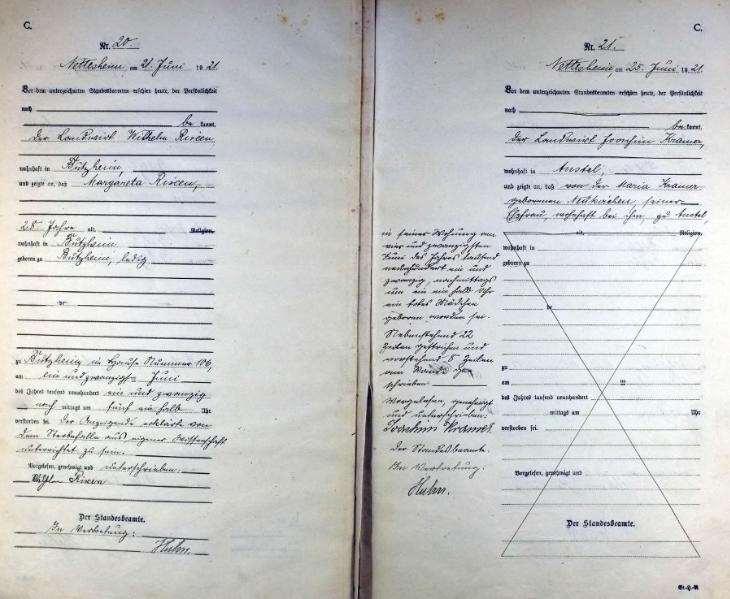 C.
Nr. 20.
Nettesheim, am 21. Juni 1921.
Vor dem unterzeichneten Standesbeamten erschien heute, der Persönlichkeit
nach
be kannt,
der Landwirt Wilhelm
wohnhaft in Butzheim,
und zeigte an, daß Margareta
25 Jahre alt, Religion,
wohnhaft in Butzheim
geboren zu Butzheim, ledig
zu Butzheim in Hause Nummer 106,
am ein und zwanzigsten Juni
des Jahres tausend neunhundert ein und zwanzig
nach mittags um fünf ein halb Uhr
verstorben sei. Der Anzeigende erklärte von
dem Sterbefalle aus eigener Wissenschaft
unterrichtet zu sein.
Vorgelesen, genehmigt und unterschrieben.
Wilh.
Der Standesbeamte.
In Vertretung:
Huhn.
C.
Nr. 21.
Nettesheim, am 25. Juni 1921.
Vor dem unterzeichneten Standesbeamten erschien heute, der Persönlichkeit
nach
be kannt,
der Landwirt Joachim Kramer,
wohnhaft in Anstel,
und zeigte an, daß von der Maria Kramer
geborenen Neukirchen, seiner
Ehefrau, wohnhaft bei ihm, zu Anstel
alt, Religion,
wohnhaft in
geboren zu
zu
am
des Jahres tausend neunhundert
mittags um Uhr
verstorben sei.
Vorgelesen, genehmigt und
Der Standesbeamte.
in seiner Wohnung am
vier und zwanzigsten
Juni des Jahres tausend
neunhundert ein und
zwanzig, nachmittags
um ein ein halb Uhr
ein totes Mädchen
geboren worden sei.
Nebenstehend 22
Zeilen gestrichen und
vorstehend 8 Zeilen
am Rande
schrieben
Vorgelesen, genehmigt
und unterschrieben:
Joachim Kramer.
Der Standesbeamte.
In Vertretung:
Huhn.